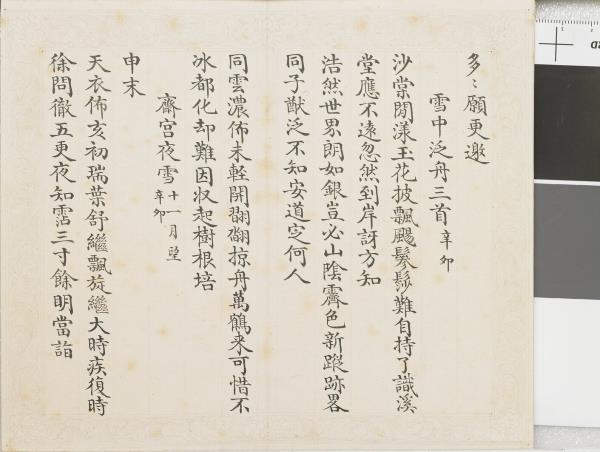 多〻願更邀
雪中泛舟三首辛卯
沙棠閒漾玉花披飄颺鬖髿難自持了識溪
堂應不遠忽然到岸訝方知
浩然世界朗如銀豈必山陰霽色新蹤跡畧
同子猷泛不知安道定何人
同雲濃佈未輕開翩翩掠舟萬鶴來可惜不
冰都化却難因収起樹根培
齋宮夜雪十一月望辛卯
申末
天衣佈亥初瑞葉舒繼飄旋繼大時疾復時
徐問徹五更夜知霑三寸餘明當詣